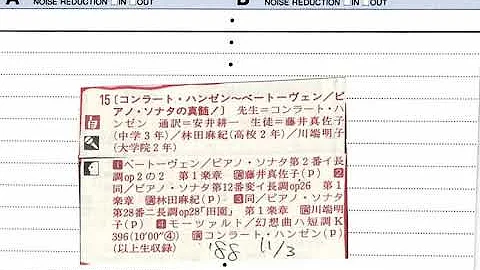 A NOISE REDUCTION □IN □OUT B NOISE REDUCTION □IN □OUT
15〔コンラート・ハンゼン〜ベートーヴェン／ピ
アノ・ソナタの真髄／〕 先生＝コンラート・ハ
ンゼン 通訳＝安井耕一 生徒＝藤井真佐子
(中学3年)／林田麻紀(高校2年)／川端明子
(大学院2年)
1ベートーヴェン／ピアノ・ソナタ第2番イ長
調op2の2 第1楽章 演藤井真佐子(P) 2
同／ピアノ・ソナタ第12番変イ長調op26 第1
楽章 演林田麻紀(P) 3同／ピアノ・ソナタ
第28番ニ長調op28「田園」 第1楽章 演川端明
子(P) 4モーツァルト／幻想曲ハ短調K
396(10′00″④) 演コンラート・ハンゼン(P)
(以上生収録) '88 11/3